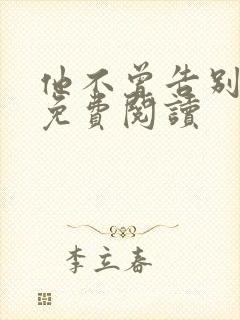 他不曾告别
免費閱讀
李立春